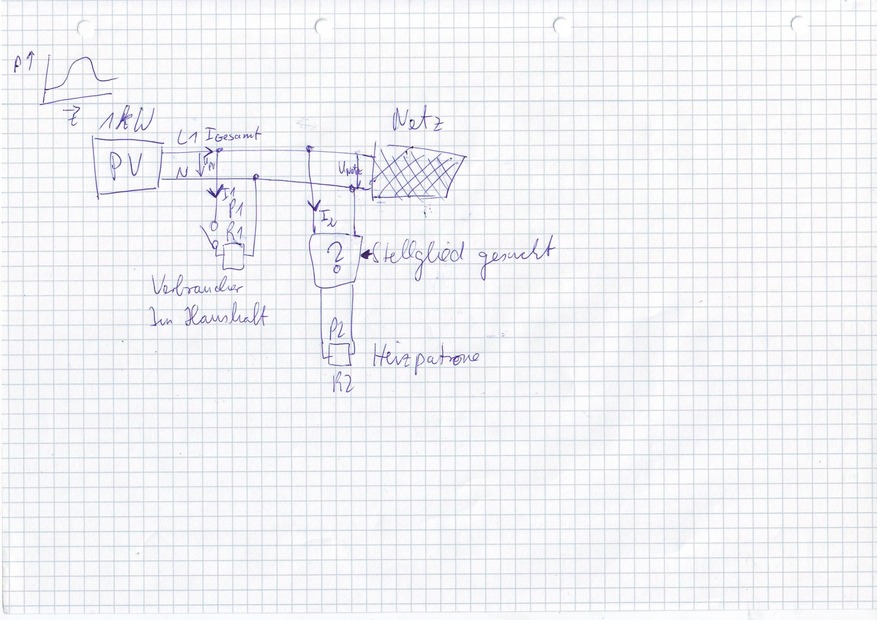 P↑
t
1kW
L1 IGesamt
Netz
PV
N
UNetz
I1
P1
R1
I2
?
Stellglied gesucht
Verbraucher
Im Haushalt
P2
Heizpatrone
R2